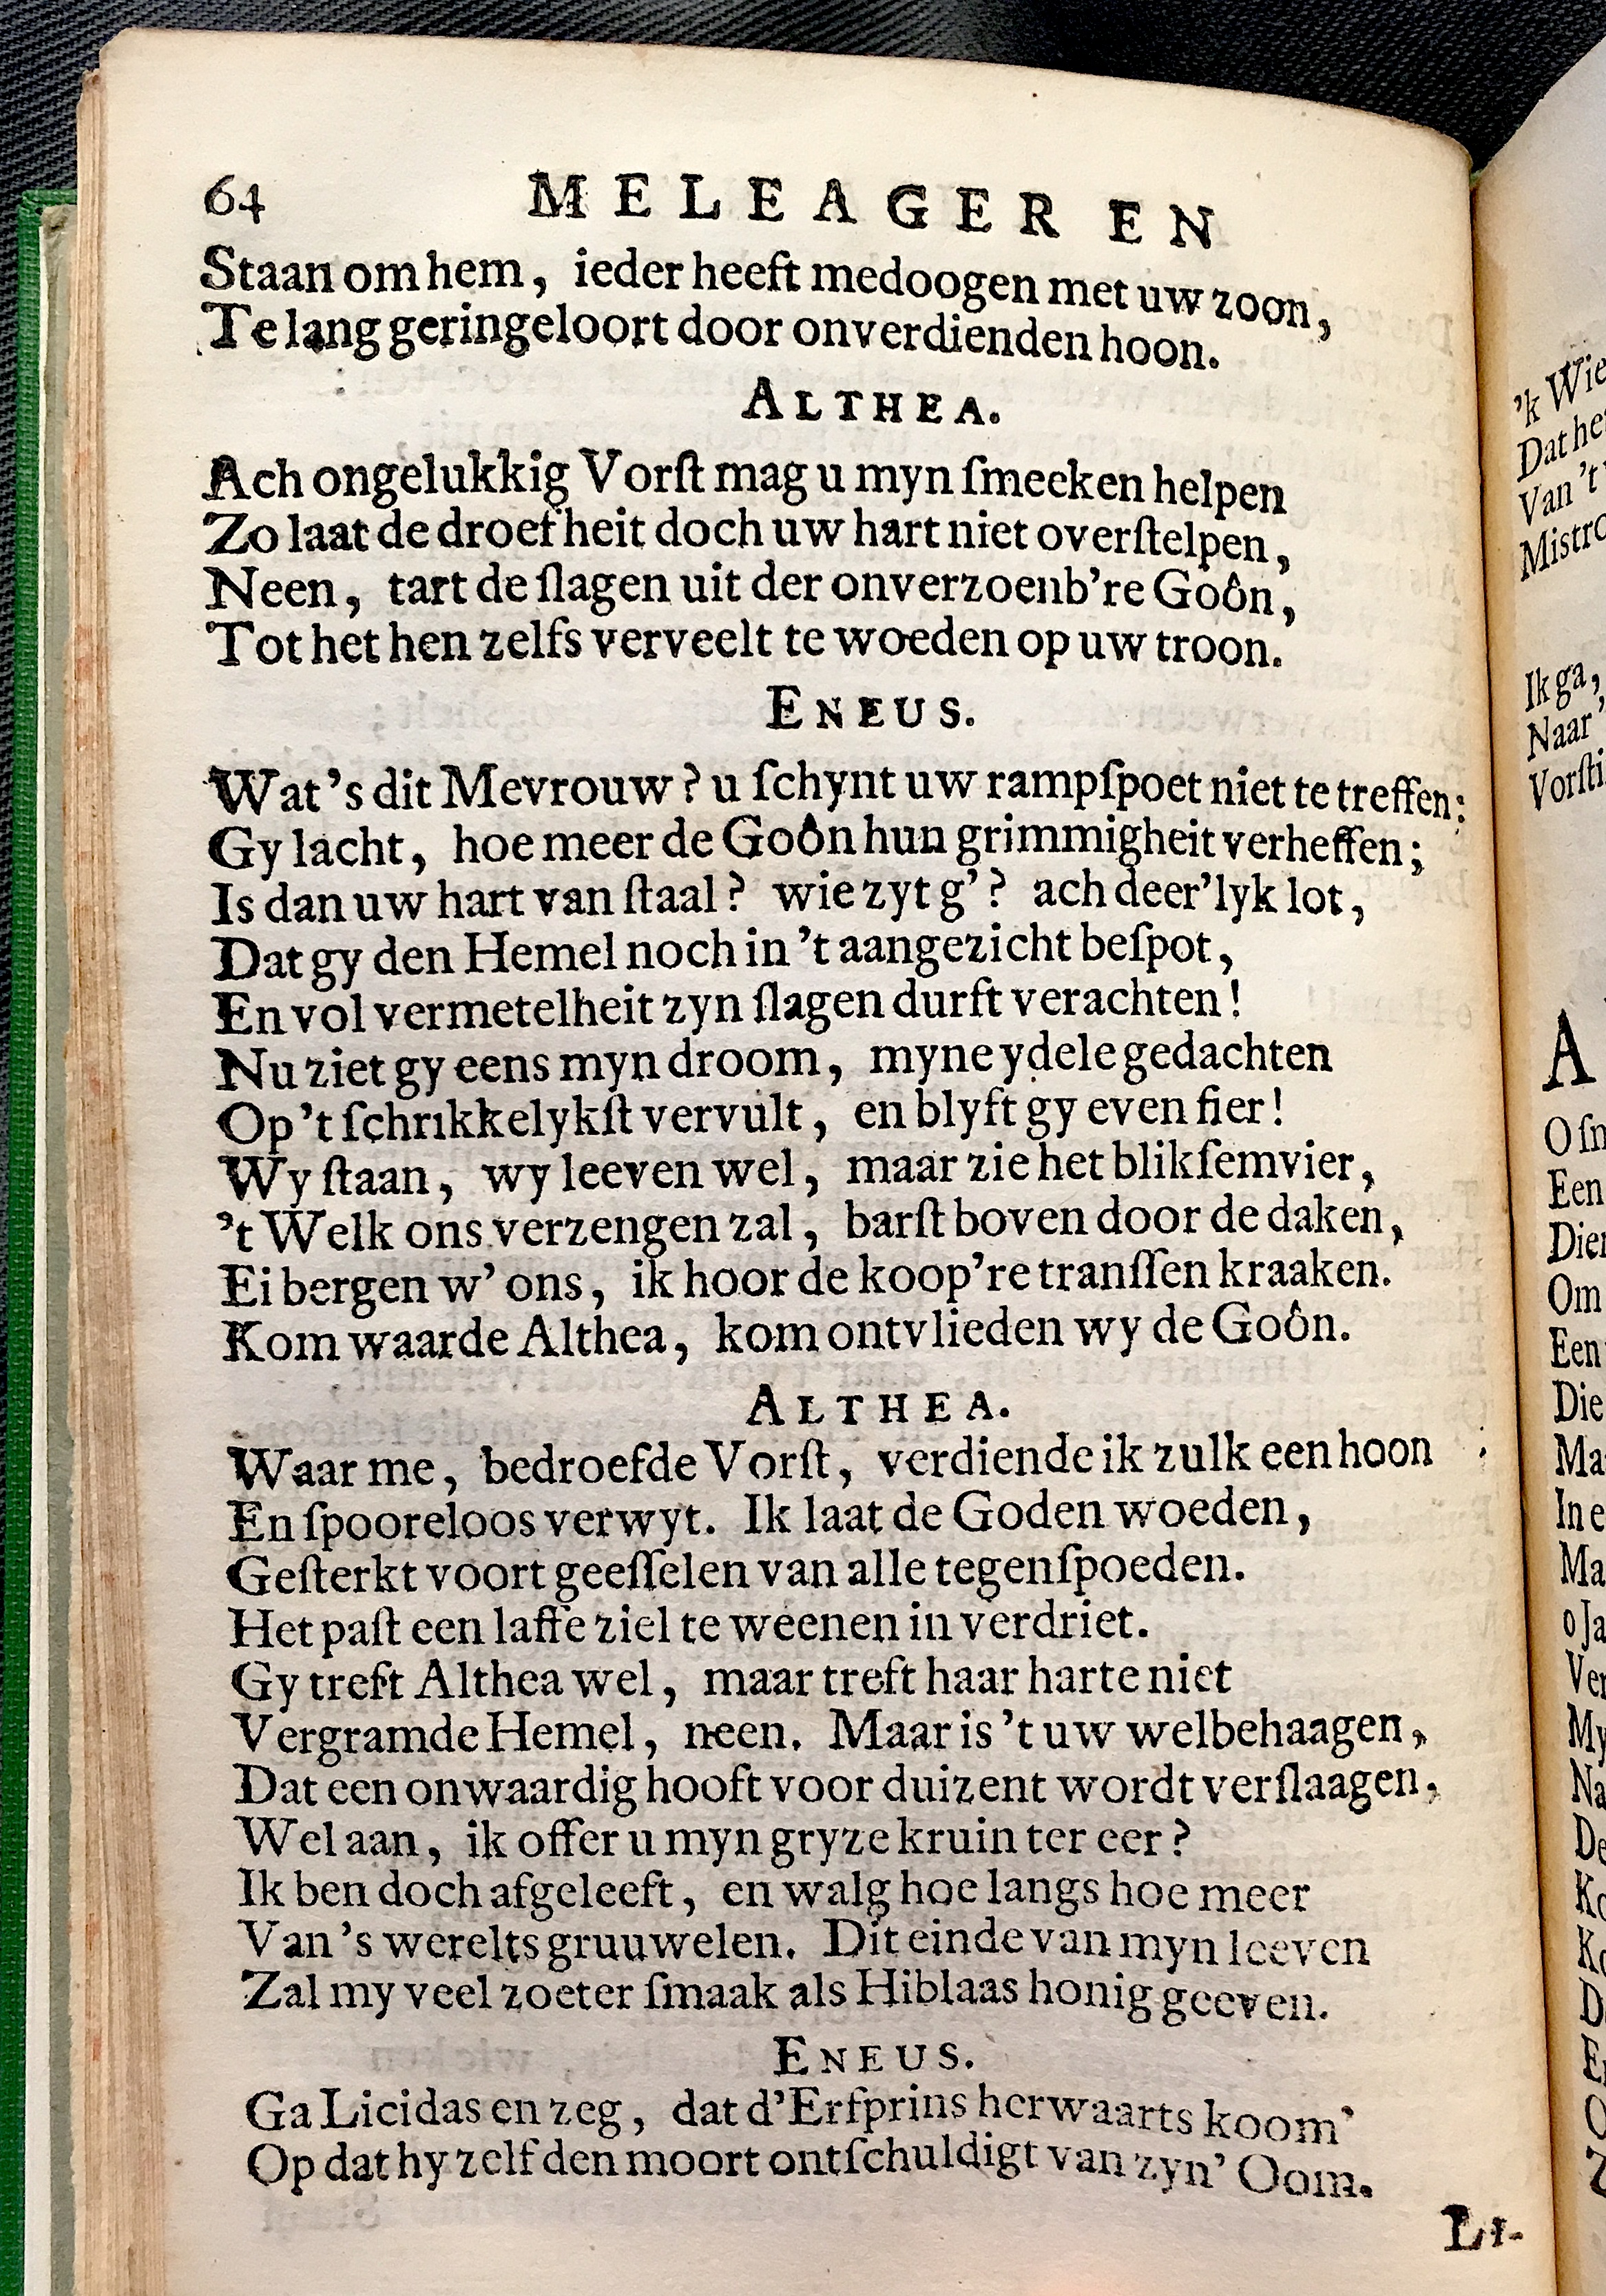 64 MELEAGER EN
Staan om hem, ieder heeft medoogen met uw zoon,
Te lang geringeloort door onverdienden hoon.
ALTHEA.
Ach ongelukkig Vorſt mag u myn ſmeeken helpen
Zo laat de droefheit doch uw hart niet overſtelpen,
Neen, tart de ſlagen uit der onverzoenb're Goôn,
Tot het hen zelfs verveelt te woeden op uw troon.
ENEUS.
Wat 's dit Mevrouw? u ſchynt uw rampſpoet niet te treffen:
Gy lacht, hoe meer de Goôn hun grimmigheit verheffen;
Is dan uw hart van ſtaal? wie zyt g'? ach deer'lyk lot,
Dat gy den Hemel noch in 't aangezicht beſpot,
En vol vermetelheit zyn ſlagen durft verachten!
Nu ziet gy eens myn droom, myne ydele gedachten
Op 't ſchrikkelykſt vervult, en blyft gy even fier!
Wy ſtaan, wy leeven wel, maar zie het blikſemvier,
't Welk ons verzengen zal, barſt boven door de daken,
Ei bergen w' ons, ik hoor de koop're tranſſen kraaken.
Kom waarde Althea, kom ontvlieden wy de Goôn.
ALTHEA.
Waar me, bedroefde Vorſt, verdiende ik zulk een hoon
En ſpooreloos verwyt. Ik laat de Goden woeden,
Geſterkt voort geeſſelen van alle tegenſpoeden.
Het paſt een laffe ziel te weenen in verdriet.
Gy treft Althea wel, maar treft haar harte niet
Vergramde Hemel, neen. Maar is 't uw welbehaagen,
Dat een onwaardig hooft voor duizent wordt verſlaagen,
Wel aan, ik offer u myn gryze kruin ter eer?
Ik ben doch afgeleeft, en walg hoe langs hoe meer
Van 's werelts gruuwelen. Dit einde van myn leeven
Zal my veel zoeter ſmaak als Hiblaas honig geeven.
ENEUS.
Ga Licidas en zeg, dat d'Erfprins herwaarts koom'
Op dat hy zelf den moort ontſchuldigt van zyn' Oom.
LI-
'k Wie
Dat he
Van 't
Mistro
Ik ga,
Naar
Vorſti
A
O ſn
Een
Dier
Om
Een
Die
Ma
In e
Ma
o Ja
Ver
My
Na
De
Ko
Ko
D